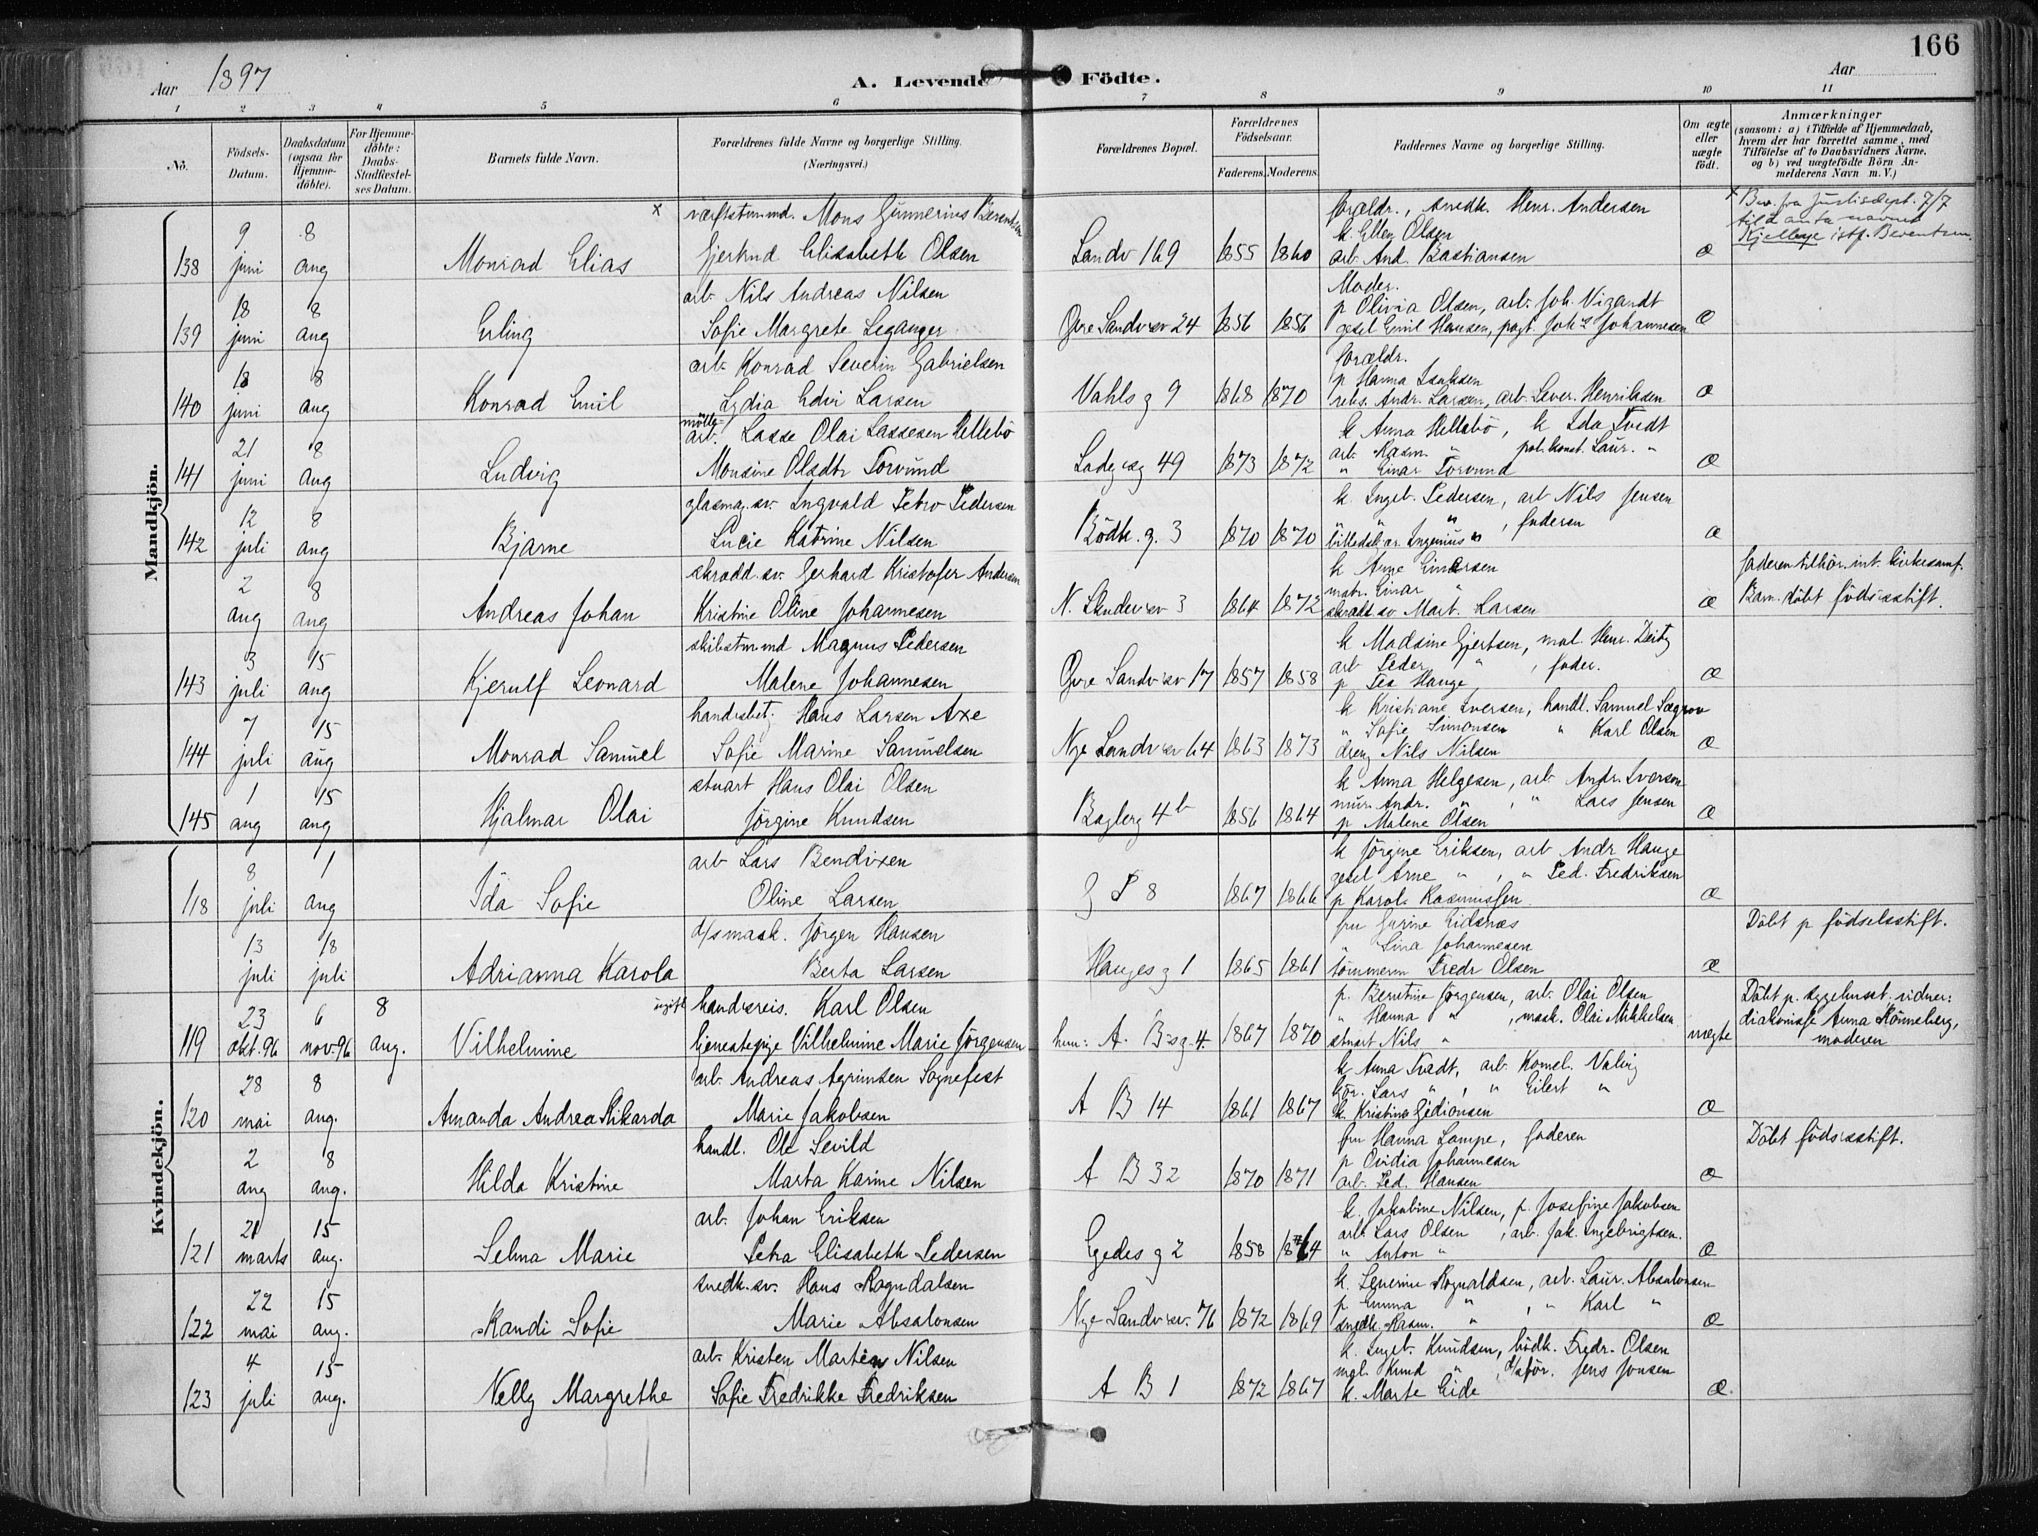 166
Aar 1897
A. Levende Födte.
Aar
1 2 3 4 5 6 7 8 9 10 11
No. Födsels-Datum. Daabsdatum (ogsaa for Hjemmedöbte). For Hjemmedöbte: Daabs-Stadfæstelses Datum. Barnets fulde Navn. Forældrenes fulde Navne og borgerlige Stilling. (Næringsvei.) Forældrenes Bopæl. Forældrenes Födselsaar. Faderens. Moderens. Faddernes Navne og borgerlige Stilling. Om ægte eller uægte födt. Anmærkninger (saasom: a) i Tilfælde af Hjemmedaab, hvem der har forrettet samme, med Tilföielse af to Daabsvidners Navne, og b) ved uægtefödte Börn Anmelderens Navn m. V.)
Mandkjön.
x værftstømmd. Mons Gunnerius Berentsen forældr., snedk. Henr. Andersen x Bev. fra Justisdept. 7/7
9 8 k. Ellen Olsen til å anta navnet
138 juni aug Monrad Elias Gjertrud Elisabeth Olsen Sandv 169 1855 1860 arb. And. Bastiansen æ Kjelbye istf. Berentsen.
arb. Nils Andreas Nilsen Moder.
18 8 p Olivia Olsen, arb. Joh. Vigandt
139 juni aug Erling Sofie Margrete Leganger Øvre Sandvsv 24 1856 1856 gesel Emil Hansen, pagt. Johs Johannesen æ
arb. Konrad Severin Gabrielsen forældr.
18 8 p Hanna Isaksen
140 juni aug Konrad Emil Lydia Edvi Larsen Vahls g 9 1868 1870 reis. Andr. Larsen, arb. Sever. Henriksen æ
mölle-
arb. Lasse Olai Lassesen Hillebö k Anna Hillebö, k Ida Tvedt
21 8 arb. Rasm. " pol.konst. Laur. "
141 juni aug Ludvig Monsine Olsdtr Torvund Ladeg.sg 49 1873 1872 " Einar Torvund æ
glasmag.sv. Ingvald Petro Pedersen k Ingeb. Pedersen, arb Nils Jensen
12 8 " " , faderen
142 juli aug Bjarne Lucie Katrine Nilsen Bödk. g. 3 1870 1870 billedsk.sv. Ingenius " æ
skrædd.sv. Gerhard Kristofer Andersen k Anne Einersen faderen tilhör. int. kirkesamf.
2 8 matr. Einar "
aug aug Andreas Johan Kristine Oline Johannesen N. Skndersv 3 1864 1872 skrædd sv Mart. Larsen æ Barn. döbt födselsstift.
skibstømmd Magnus Pedersen k Madsine Gjertsen, mal. Henr. Deity
3 15 arb Peder " , fader.
143 juli aug Kjerulf Leonard Malene Johannesen Øvre Sandvsv 17 1857 1858 p Tea Hauge æ
handsbet. Hans Larsen Axe k Kristiane Iversen, handl. Samuel Sægrov
7 15 " Sofie Simonsen " Karl Olsen
144 juli aug Monrad Samuel Sofie Marine Samuelsen Nye Sandvsv 64 1863 1873 dreng Nils Nilsen æ
stuart Hans Olai Olsen k Anna Helgesen, arb. Andr. Iversen
1 15 mur. Andr. " , " Lars Jensen
145 aug aug Hjalmar Olai Jörgine Knudsen Bagberg 4b 1856 1864 p Malene Olsen æ
Kvindekjön.
arb Lars Bendixen k Jörgine Eriksen, arb Andr Hauge
8 1 gesel Arne " , " Ped. Fredriksen
118 juli aug Ida Sofie Oline Larsen J S 8 1867 1866 p Karol. Rasmussen æ
d/s mask. Jörgen Hansen fru Gurine Eidsnæs Döbt p födselsstift.
13 18 " Lina Johannesen
juli juli Adrianna Karola Berta Larsen Hauges g 1 1865 1861 tömmerm Fredr Olsen æ
ugift handsreis. Karl Olsen p. Berntine Jörgensen, arb. Olai Olsen Döbt p. sygehuset. vidner:
23 6 8 " Hanna " , mask. Olai Mikkelsen diakonisse Anna Rönneberg,
119 okt. 96 nov. 96 aug. Vilhelmine tjenestepige Vilhelmine Marie Jörgensen hun: A. B.sg. 4. 1867 1870 stuart Nils " uægte moderen
arb. Andreas Agrimsen Sognefest k Anna Tvedt, arb. Kornel. Valvig
28 8 kör. Lars " , " Eilert "
120 mai aug. Amanda Andrea Rikarda Marie Jakobsen A B 14 1861 1867 k. Kristine Gedionsen æ
handl. Ole Sevild fru Hanna Lampe, faderen Döbt födselsstift.
2 8 p Ovidia Johannesen
aug aug. Hilda Kristine Marta Karine Nilsen A B 32 1870 1871 arb. Ped. Hansen æ
arb. Johan Eriksen k. Jakobine Nilsen, p. Josefine Jakobsen
21 15 arb Lars Olsen , arb. Jak. Ingebrigtsen.
121 marts aug. Selma Marie Petra Elisabeth Pedersen Egedes g 2 1858 1864 " Anton " æ
snedk.sv. Hans Rogndalsen k. Severine Rognaldsen, arb. Laur. Absalonsen
22 15 p Emma " , " Karl "
122 mai aug. Randi Sofie Marie Absalonsen Nye Sandvsv. 76 1872 1869 snedk. Rasm. " æ
arb. Kristen Martin Nilsen k. Ingeb. Knudsen, bödk. Fredr. Olsen
4 15 mgl. Knud " , d/sför. Jens Jonsen
123 juli aug. Nelly Margrethe Sofie Fredrikke Fredriksen A B 1 1872 1867 k. Marte Eide æ.